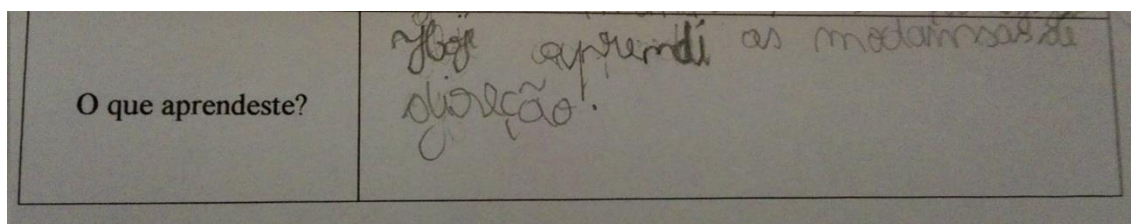 O que aprendeste?
Hoje aprendi as modansas de
direção.